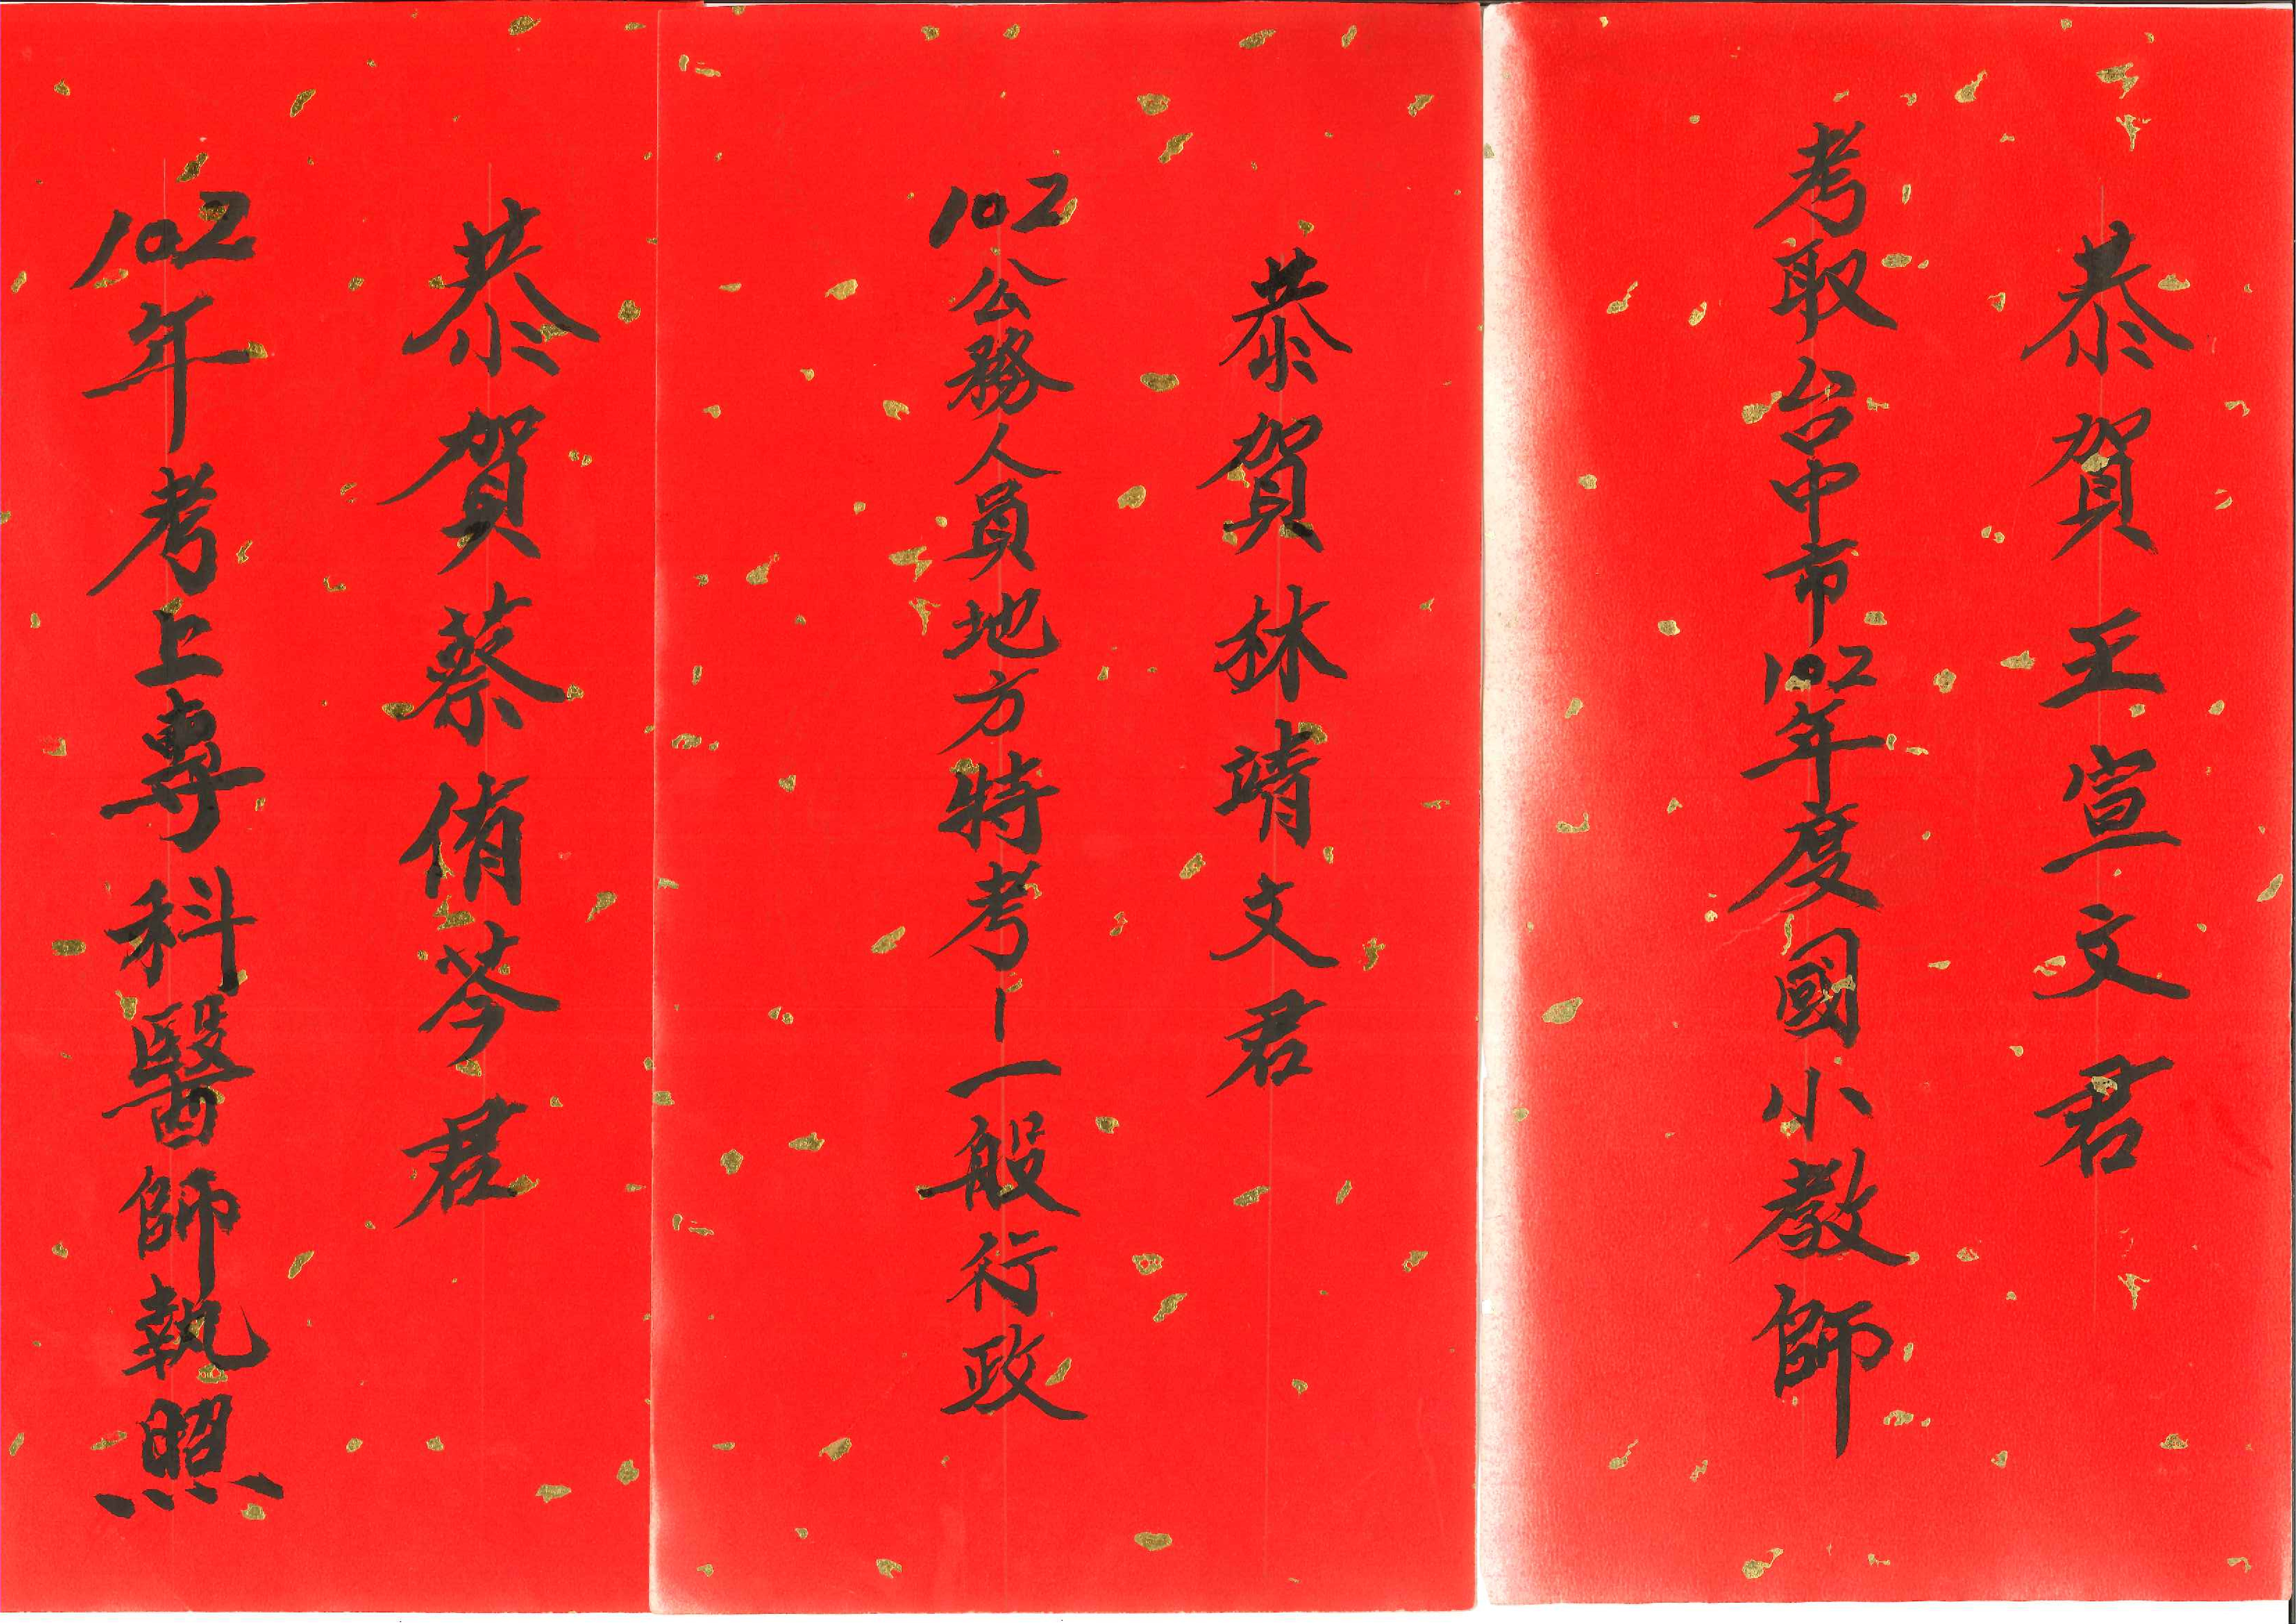 恭賀王宣文君
考取台中市102年度國小教師
恭賀林靖文君
102公務人員地方特考-一般行政
恭賀蔡侑芩君
102年考上專科醫師執照